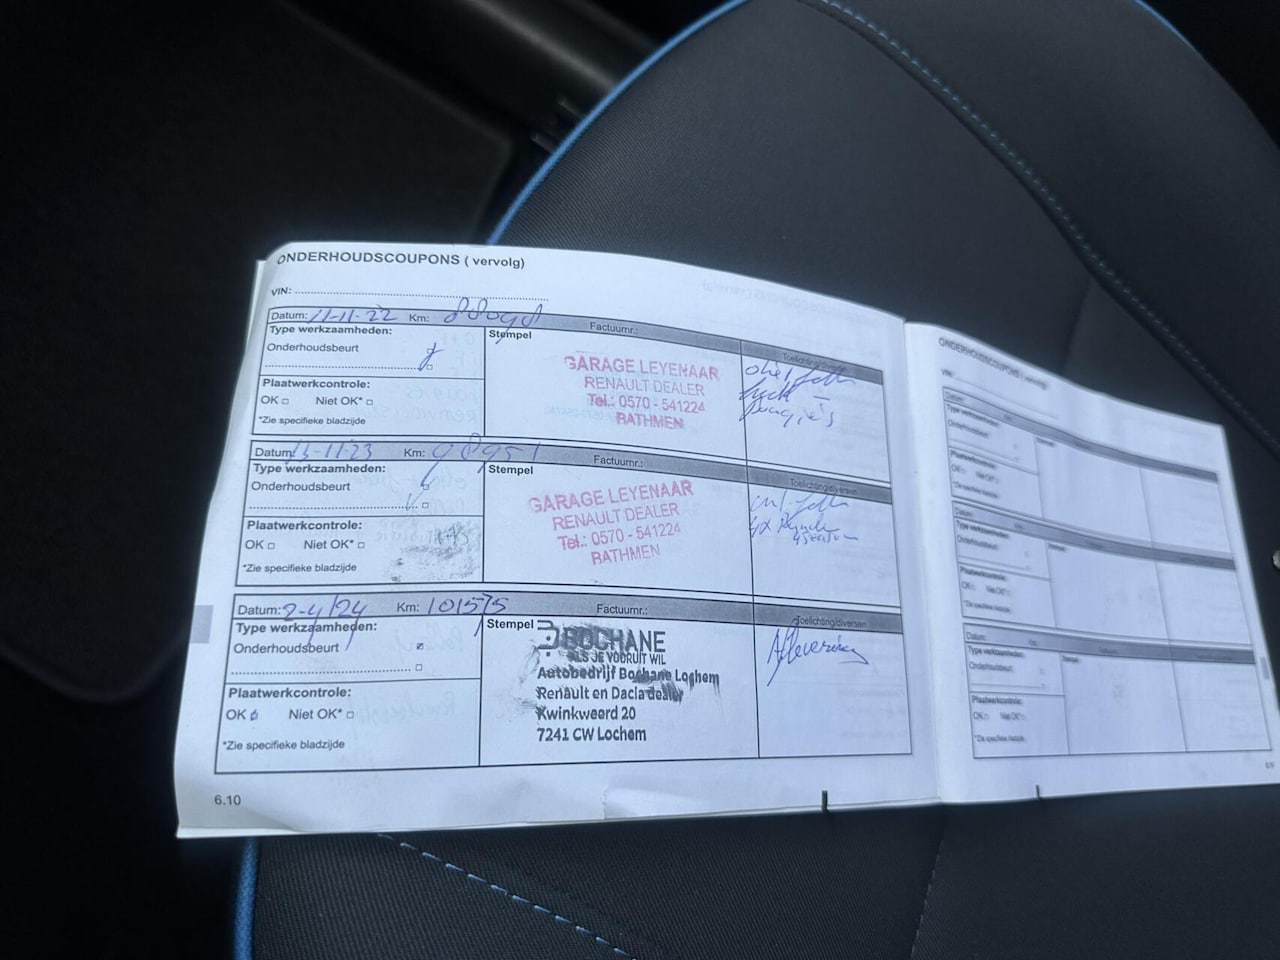 ONDERHOUDSCOUPONS ( vervolg)
VIN:
Datum: 11-11-22 Km: 88098
Factuurnr.:
Toelichting/diversen
Type werkzaamheden:
Onderhoudsbeurt
Plaatwerkcontrole:
OK Niet OK*
*Zie specifieke bladzijde
Stempel
GARAGE LEYENAAR
RENAULT DEALER
Tel.: 0570 - 541224
BATHMEN
Datum: 13-11-23 Km: 98951
Factuurnr.:
Toelichting/diversen
Type werkzaamheden:
Onderhoudsbeurt
Plaatwerkcontrole:
OK Niet OK*
*Zie specifieke bladzijde
Stempel
GARAGE LEYENAAR
RENAULT DEALER
Tel.: 0570 - 541224
BATHMEN
Datum: 2-4/24 Km: 101575
Factuurnr.:
Toelichting/diversen
Type werkzaamheden:
Onderhoudsbeurt
Plaatwerkcontrole:
OK Niet OK*
*Zie specifieke bladzijde
Stempel
BOCHANE
ALS JE VOORUIT WIL
Autobedrijf Bochane Lochem
Renault en Dacia dealer
Kwinkweerd 20
7241 CW Lochem
Aflevering
6.10
ONDERHOUDSCOUPONS ( vervolg)
VIN:
Datum:
Type werkzaamheden:
Onderhoudsbeurt
Plaatwerkcontrole:
OK Niet OK*
*Zie specifieke bladzijde
Datum:
Type werkzaamheden:
Onderhoudsbeurt
Plaatwerkcontrole:
OK Niet OK*
*Zie specifieke bladzijde
Datum:
Type werkzaamheden:
Onderhoudsbeurt
Plaatwerkcontrole:
OK Niet OK*
*Zie specifieke bladzijde